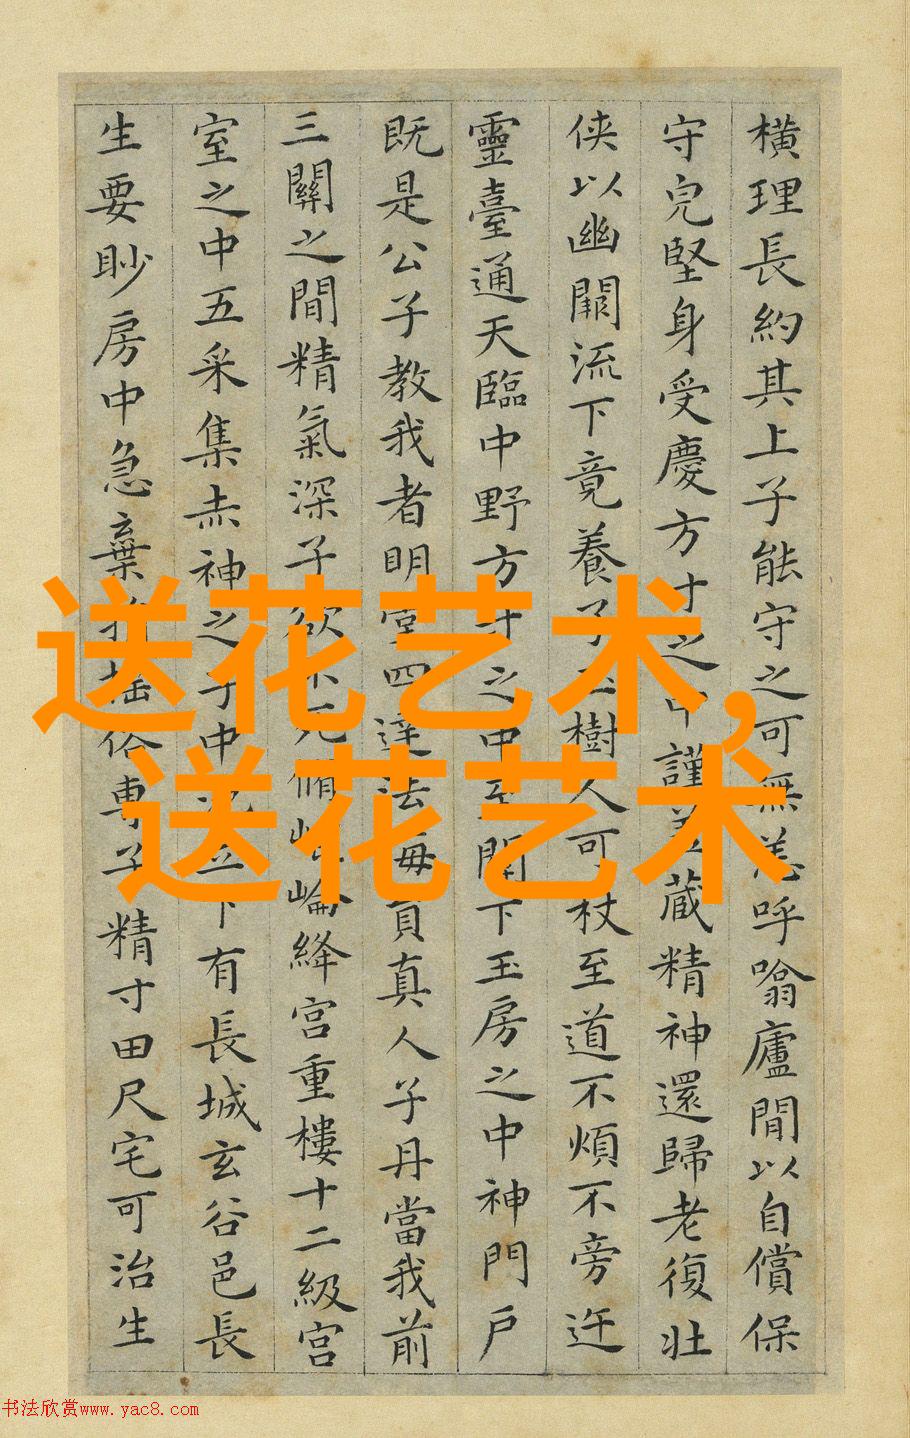 橫理長約其上子能守之可無恙呼噏廬間以自償保
守皃堅身受慶方寸之中謹蓋藏精神還歸老復壯
侠以幽闕流下竟養子玉樹人可杖至道不煩不旁迕
靈臺通天臨中野方寸之中至關下玉房之中神門戶
既是公子教我者明堂四達法海員真人子丹當我前
三關之間精氣深子欲不死脩崐崘絳宮重樓十二級宮
室之中五采集赤神之子中池立下有長城玄谷邑長
生要眇房中急棄捐搖俗專子精寸田尺宅可治生
送花艺术,
送花艺术
书法欣赏www.yac8.com